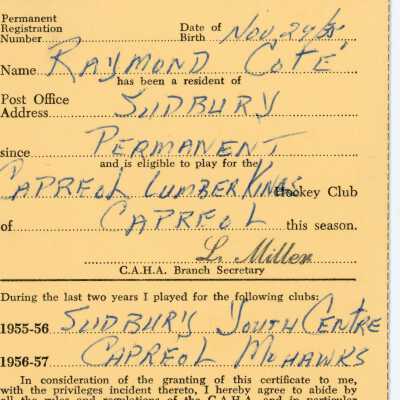 Permanent
Registration Date of
Number Birth Nov, 24/38,
Name RAYMOND COTÉ
has been a resident of
Post Office
Address SUDBURY
since PERMANENT
and is eligible to play for the
CAPREOL LUMBER KINGS Hockey Club
of CAPREOL this season.
L. Miller
C.A.H.A. Branch Secretary
During the last two years I played for the following clubs:
1955-56 SUDBURY YOUTH CENTRE
1956-57 CAPREOL MOHAWKS
In consideration of the granting of this certificate to me,
with the privileges incident thereto, I hereby agree to abide by
all the rules and regulations of the C.A.H.A. and in particular